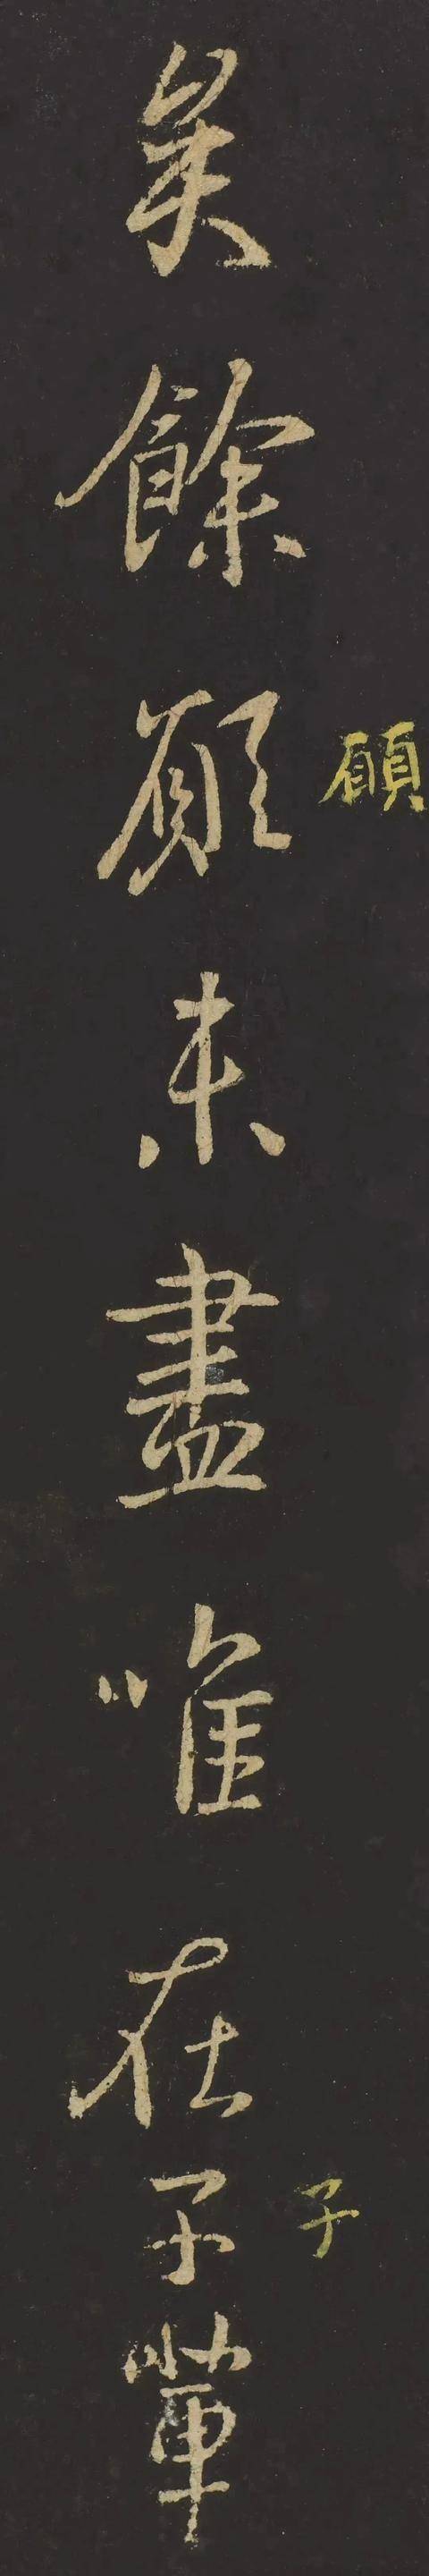 顧
子
矣餘願未盡唯在子輩